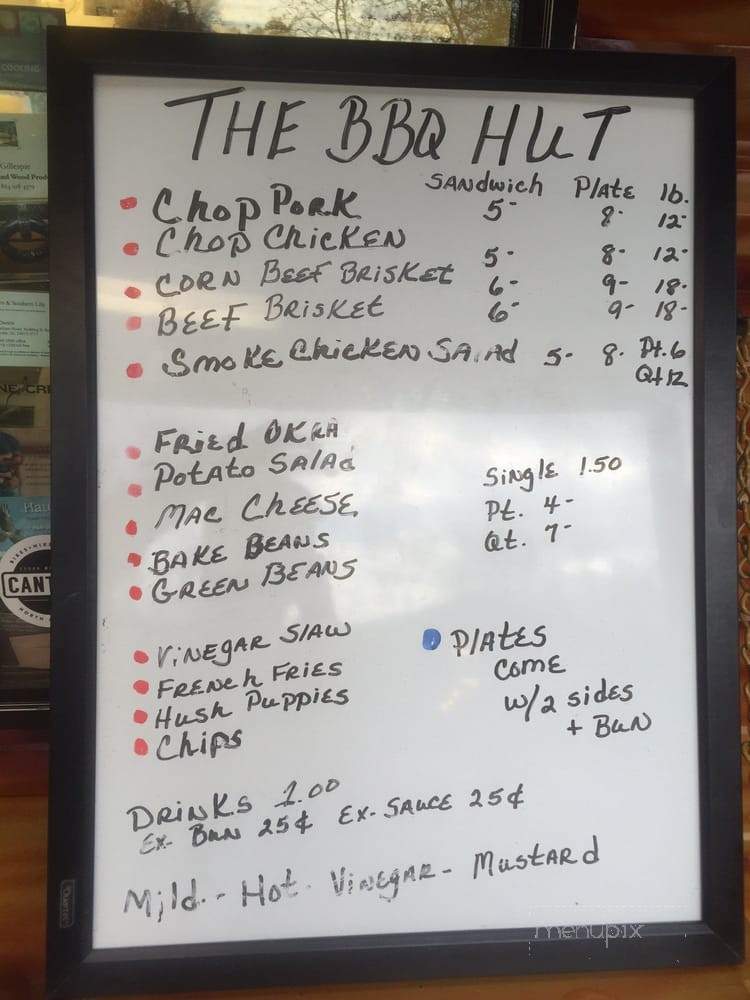 THE BBQ HUT
SANDWICH PLATE lb.
Chop PORK 5- 8- 12-
Chop ChickEN 5- 8- 12-
CORN BEEF BRISKET 6- 9- 18-
BEEF BRISKET 6- 9- 18-
SMOKE ChickEN SAlAd 5- 8- Pt. 6
Qt 12
FRiEd OKRA
POTATO SAlAd Single 1.50
MAC ChEESE Pt. 4-
BAKE BEANS Qt. 7-
GREEN BEANS
VINEGAR SlAW PlATES
FRENCH FRIES COME
Hush PuppiES w/2 sides
Chips + BUN
DRINKS 1.00
Ex- BUN 25¢ Ex- SAUCE 25¢
Mild - Hot - VINEGAR - MUSTARd
COOKING
Gillespie
CANT
menupix